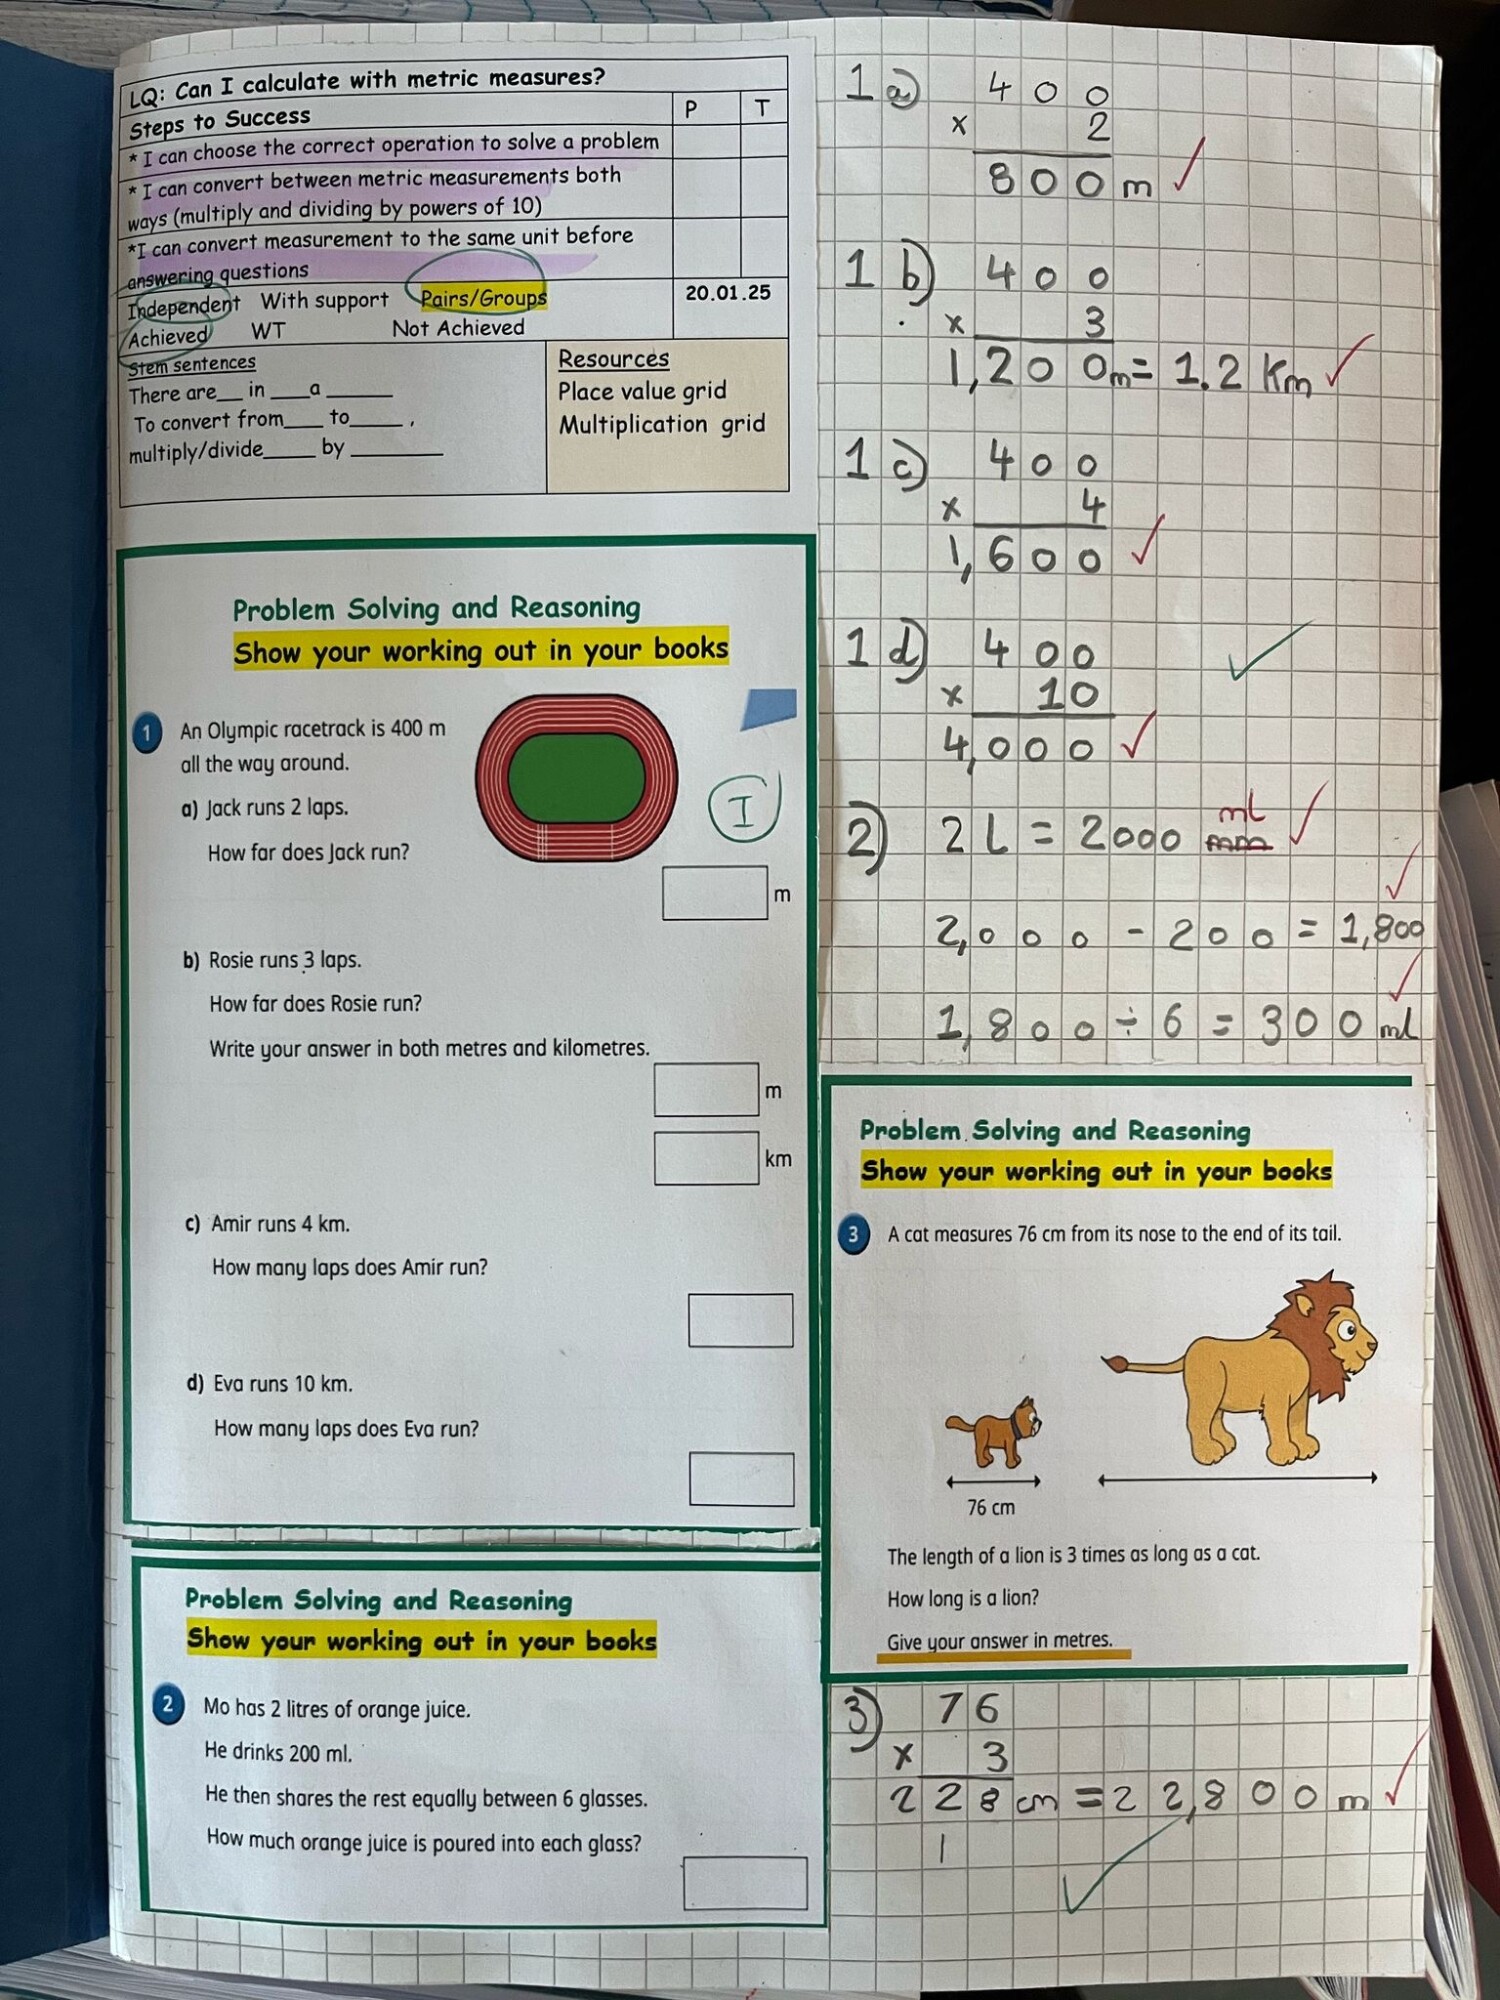 LQ: Can I calculate with metric measures?
Steps to Success P T
* I can choose the correct operation to solve a problem
* I can convert between metric measurements both
ways (multiply and dividing by powers of 10)
*I can convert measurement to the same unit before
answering questions
Independent With support Pairs/Groups 20.01.25
Achieved WT Not Achieved
Stem sentences
There are__ in ____a ______
To convert from____ to_____ ,
multiply/divide_____ by ________
Resources
Place value grid
Multiplication grid
Problem Solving and Reasoning
Show your working out in your books
1 An Olympic racetrack is 400 m
all the way around.
a) Jack runs 2 laps.
How far does Jack run?
I
m
b) Rosie runs 3 laps.
How far does Rosie run?
Write your answer in both metres and kilometres.
m
km
c) Amir runs 4 km.
How many laps does Amir run?
d) Eva runs 10 km.
How many laps does Eva run?
Problem Solving and Reasoning
Show your working out in your books
2 Mo has 2 litres of orange juice.
He drinks 200 ml.
He then shares the rest equally between 6 glasses.
How much orange juice is poured into each glass?
1 a) 400
x 2
800 m ✓
1 b) 400
x 3
1,200m = 1.2 Km ✓
1 c) 400
x 4
1,600 ✓
1 d) 400 ✓
x 10
4,000 ✓
ml
2) 2 L = 2000 mm ✓
✓
2,000 - 200 = 1,800
✓
1,800 ÷ 6 = 300 ml
Problem Solving and Reasoning
Show your working out in your books
3 A cat measures 76 cm from its nose to the end of its tail.
76 cm
The length of a lion is 3 times as long as a cat.
How long is a lion?
Give your answer in metres.
3) 76
x 3
228 cm = 22,800 m ✓
1 ✓